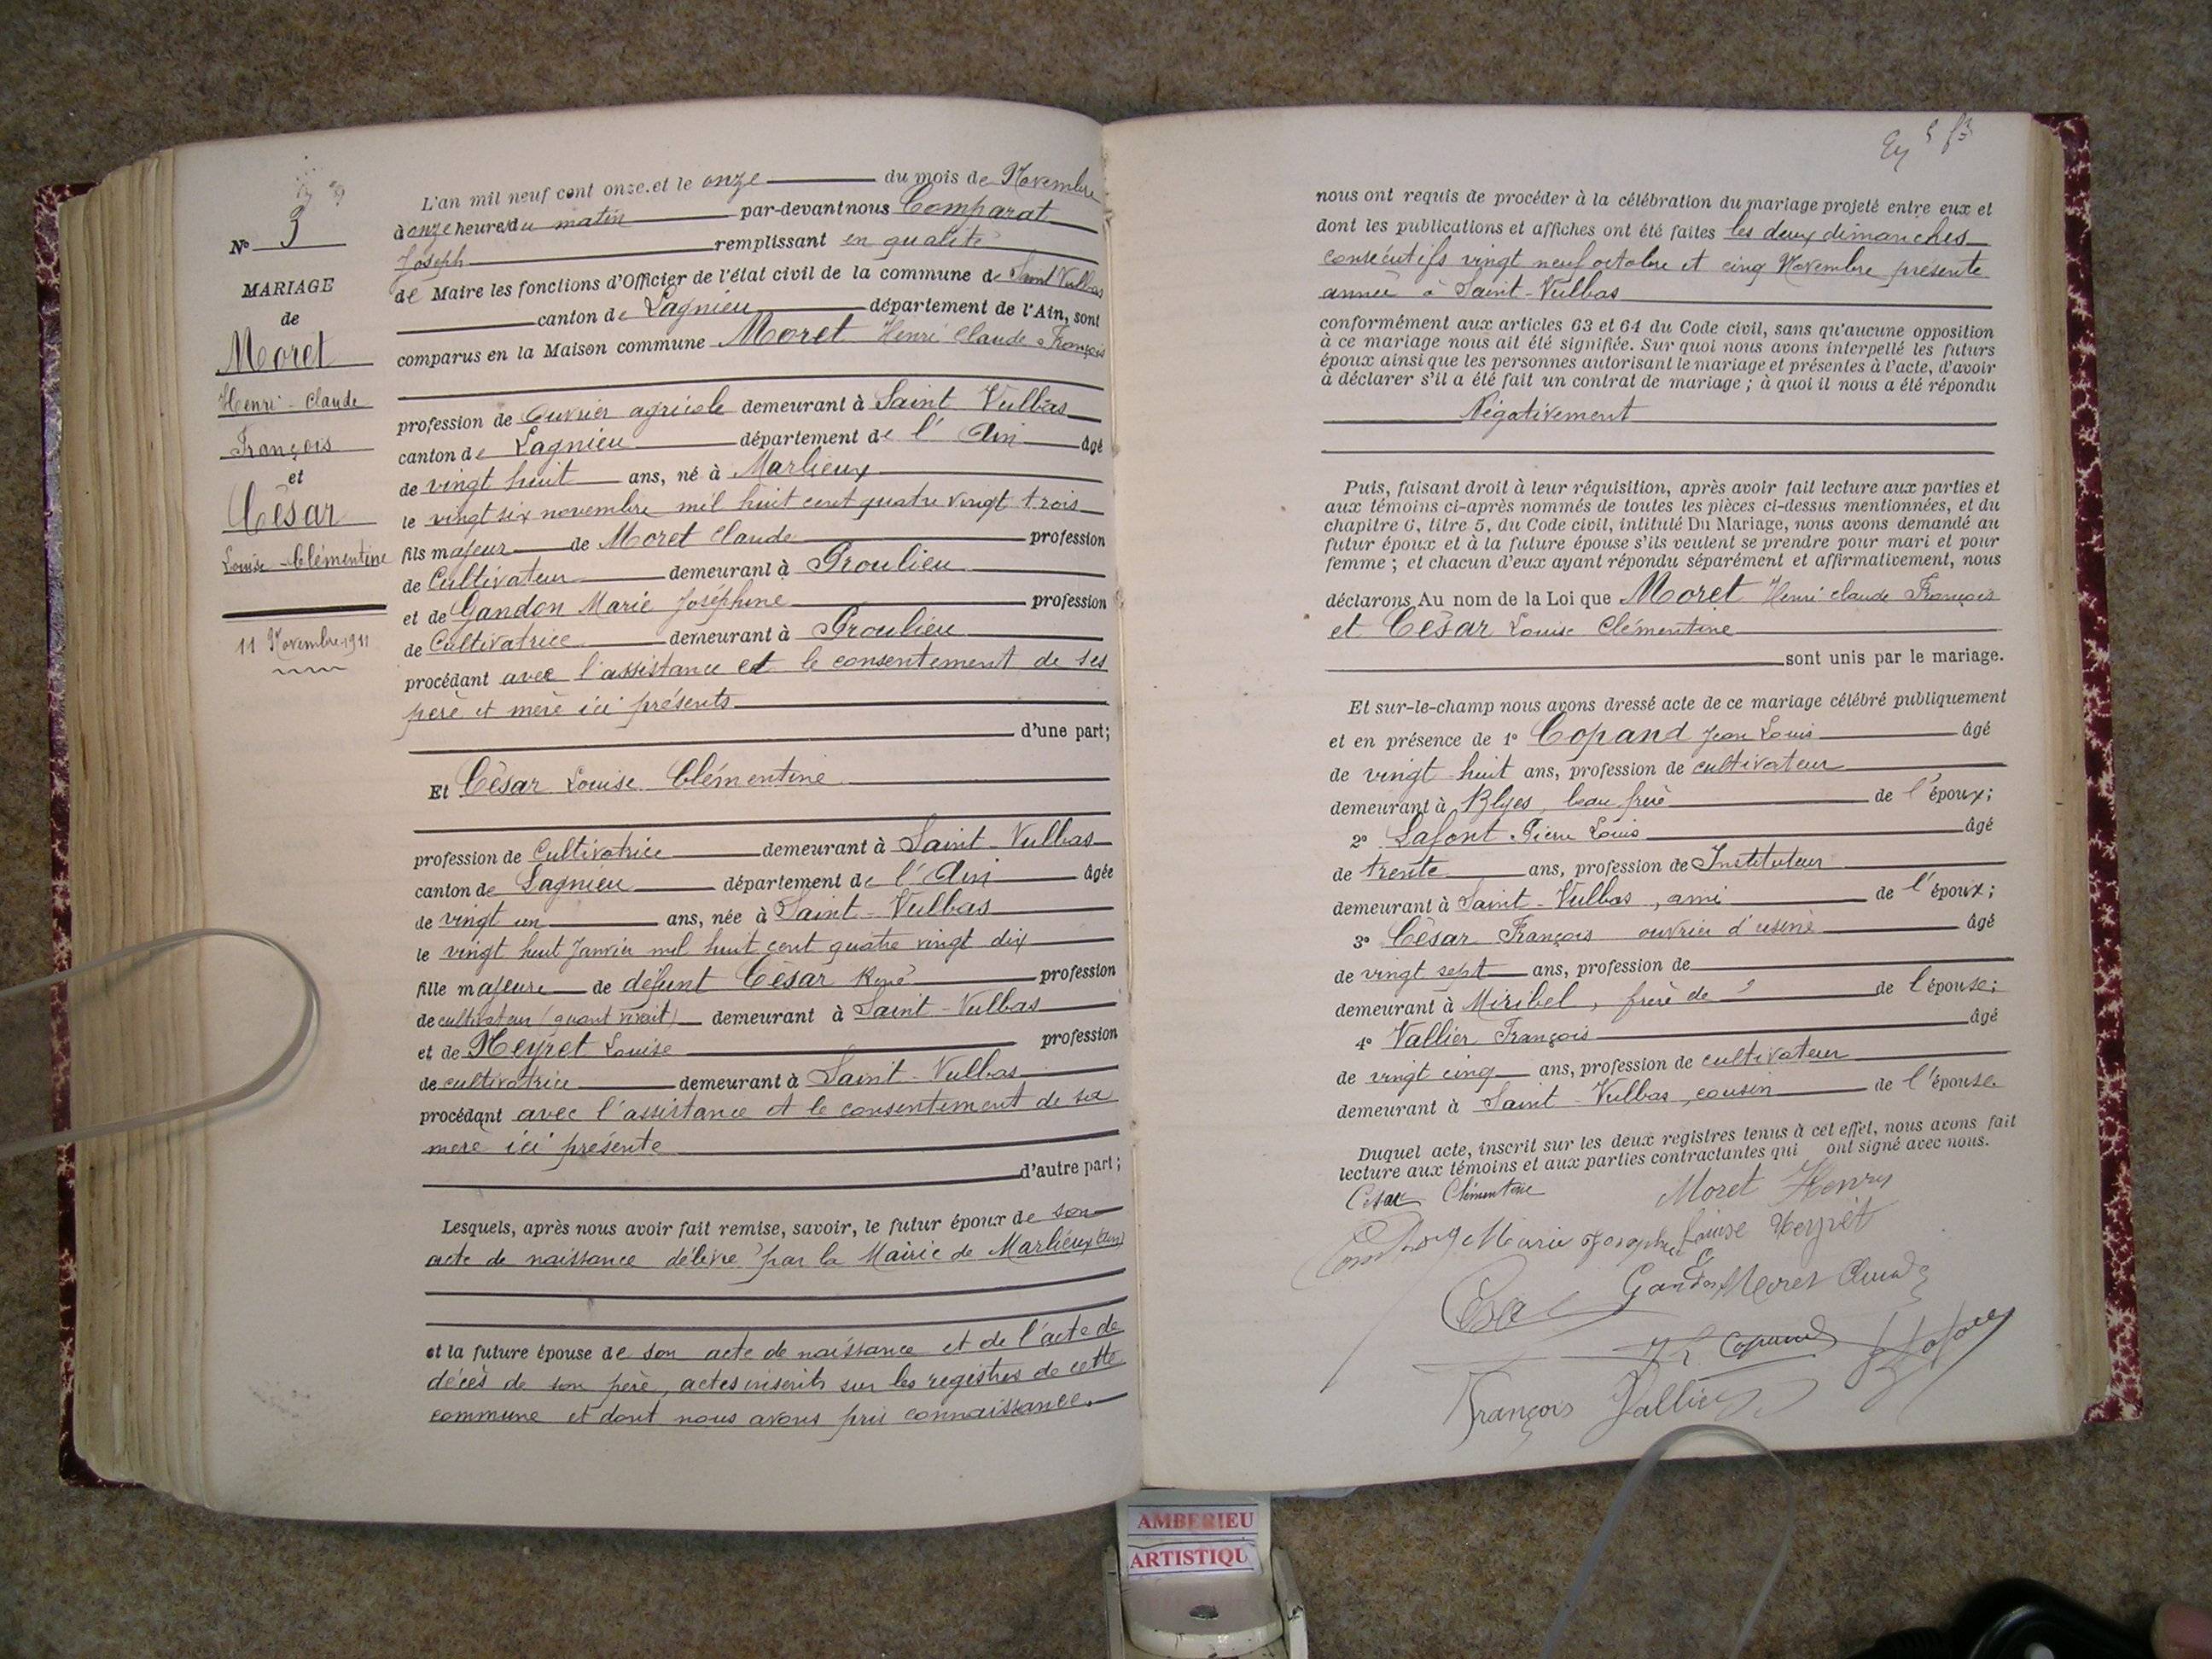 N° 3
MARIAGE
de
Moret
Henri - Claude
François
et
César
Louise - Clémentine
11 Novembre 1911
L'an mil neuf cent onze, et le onze du mois de Novembre
à onze heures du matin par-devant nous Comparat
Joseph remplissant en qualité
de Maire les fonctions d'Officier de l'état civil de la commune de Saint Vulbas
canton de Lagnieu département de l'Ain, sont
comparus en la Maison commune Moret Henri Claude François
profession de Ouvrier agricole demeurant à Saint Vulbas
canton de Lagnieu département de l'Ain âgé
de vingt huit ans, né à Marlieux
le vingt six novembre mil huit cent quatre vingt trois
fils majeur de Moret Claude profession
de Cultivateur demeurant à Proulieu
et de Gandon Marie Joséphine profession
de Cultivatrice demeurant à Proulieu
procédant avec l'assistance et le consentement de ses
père et mère ici présents
d'une part;
Et César Louise Clémentine
profession de Cultivatrice demeurant à Saint-Vulbas
canton de Lagnieu département de l'Ain âgée
de vingt un ans, née à Saint-Vulbas
le vingt huit Janvier mil huit cent quatre vingt dix
fille majeure de défunt César René profession
de cultivateur (quant vivait) demeurant à Saint-Vulbas
et de Heyret Louise profession
de cultivatrice demeurant à Saint-Vulbas
procédant avec l'assistance et le consentement de sa
mère ici présente
d'autre part;
Lesquels, après nous avoir fait remise, savoir, le futur époux de son
acte de naissance délivré par la Mairie de Marlieux (Ain)
et la future épouse de son acte de naissance et de l'acte de
décès de son père, actes inscrits sur les registres de cette
commune et dont nous avons pris connaissance.
nous ont requis de procéder à la célébration du mariage projeté entre eux et
dont les publications et affiches ont été faites les deux dimanches
consécutifs vingt neuf octobre et cinq Novembre présente
année à Saint-Vulbas
conformément aux articles 63 et 64 du Code civil, sans qu'aucune opposition
à ce mariage nous ait été signifiée. Sur quoi nous avons interpellé les futurs
époux ainsi que les personnes autorisant le mariage et présentes à l'acte, d'avoir
à déclarer s'il a été fait un contrat de mariage; à quoi il nous a été répondu
Négativement
Puis, faisant droit à leur réquisition, après avoir fait lecture aux parties et
aux témoins ci-après nommés de toutes les pièces ci-dessus mentionnées, et du
chapitre 6, titre 5, du Code civil, intitulé Du Mariage, nous avons demandé au
futur époux et à la future épouse s'ils veulent se prendre pour mari et pour
femme; et chacun d'eux ayant répondu séparément et affirmativement, nous
déclarons Au nom de la Loi que Moret Henri Claude François
et César Louise Clémentine
sont unis par le mariage.
Et sur-le-champ nous avons dressé acte de ce mariage célébré publiquement
et en présence de 1° Copand Jean Louis âgé
de vingt huit ans, profession de cultivateur
demeurant à Blyes, beau frère de l'époux;
2° Lafont Pierre Louis âgé
de trente ans, profession de Instituteur
demeurant à Saint-Vulbas, ami de l'époux;
3° César François ouvrier d'usine âgé
de vingt sept ans, profession de
demeurant à Miribel, frère de de l'épouse;
4° Vallier François âgé
de vingt cinq ans, profession de cultivateur
demeurant à Saint-Vulbas, cousin de l'épouse
Duquel acte, inscrit sur les deux registres tenus à cet effet, nous avons fait
lecture aux témoins et aux parties contractantes qui ont signé avec nous.
César Clémentine Moret Henry
Marie Josephine Louise Heyret
César Gandon Moret Claude
J L Copand
François Vallier
AMBERIEU
ARTISTIQU